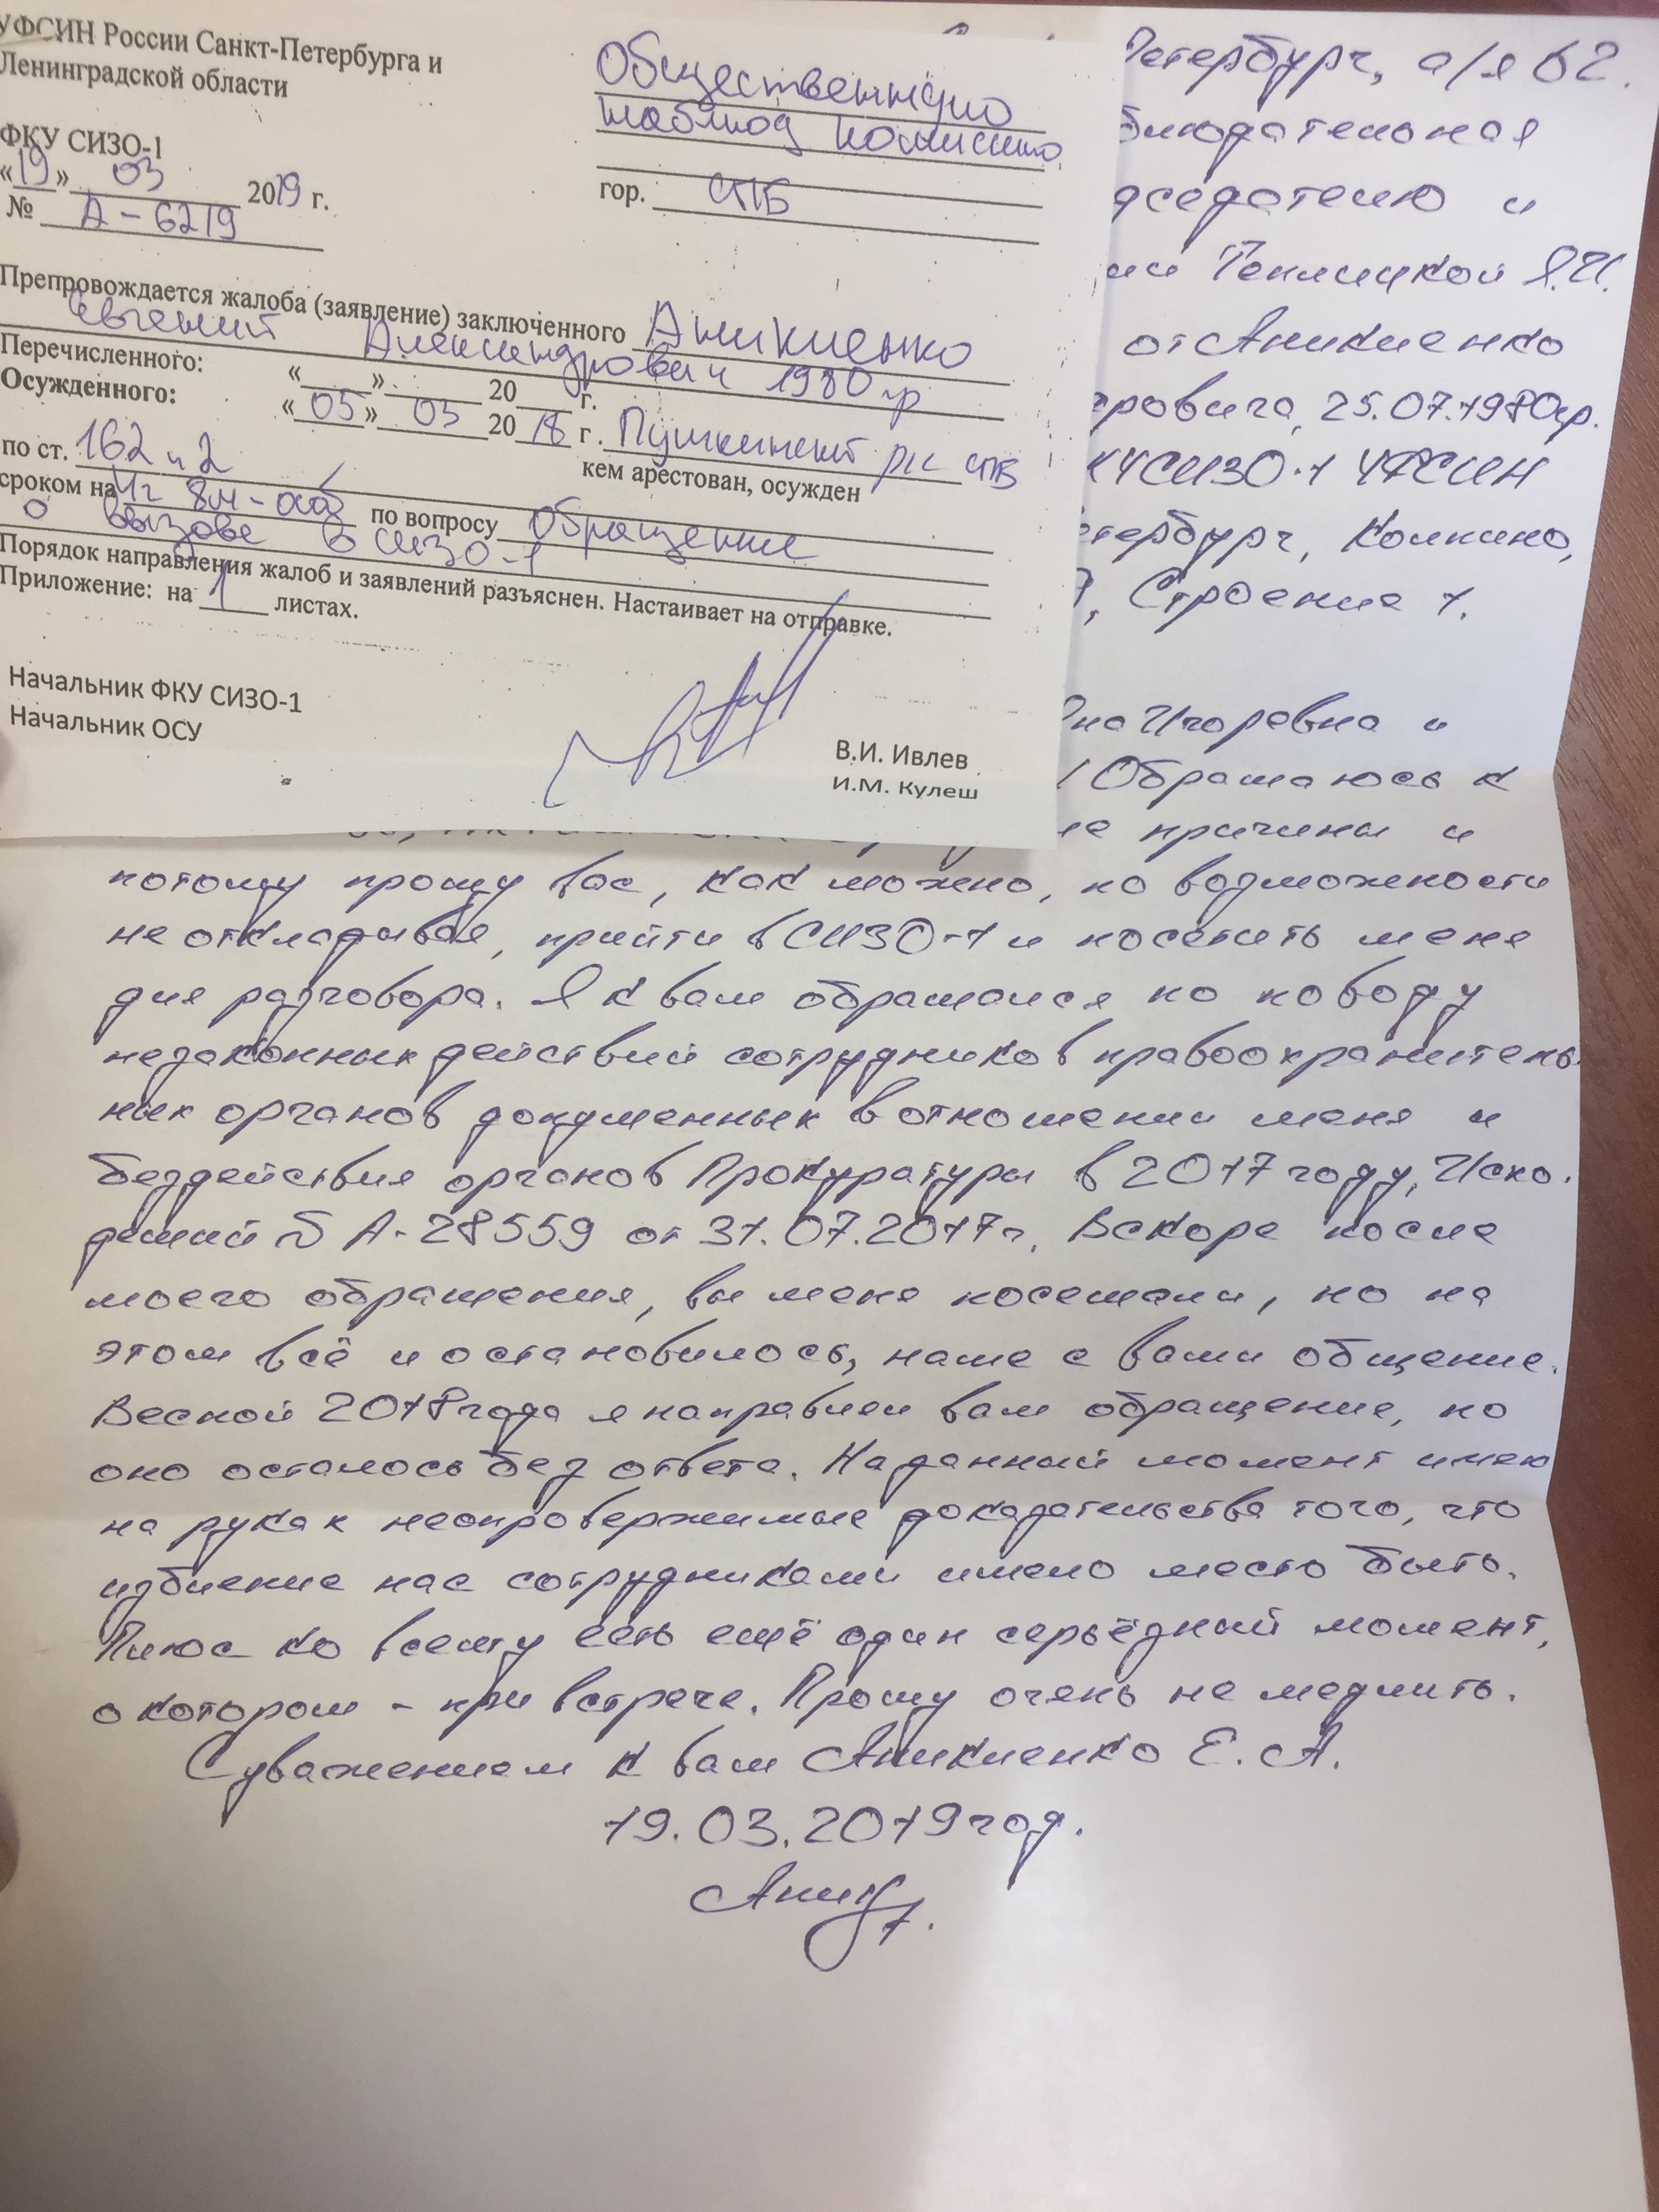 УФСИН России Санкт-Петербурга и
Ленинградской области
ФКУ СИЗО-1
«19» 03 2019 г.
№ А-6219
Общественную
наблюд комиссию
гор. СПБ
Препровождается жалоба (заявление) заключенного Аникиенко
Евгений Александрович 1980 гр
Перечисленного: « » 20 г.
Осужденного: «05» 03 2018 г. Пушкинский рс СПБ
кем арестован, осужден
по ст. 162 ч 2
сроком на 4г 8м по вопросу Обращение
о вызове в СИЗО-1
Порядок направления жалоб и заявлений разъяснен. Настаивает на отправке.
Приложение: на 1 листах.
Начальник ФКУ СИЗО-1
Начальник ОСУ
В.И. Ивлев
И.М. Кулеш
Петербург, а/я 62.
блюдательная
дседателю и
ии Теплицкой Я.И.
от Аникиенко
ровича, 25.07.1980гр.
СИЗО-1 УФСИН
тербург, Колпино,
, Строение 1.
на Игоревна и
! Обращаюсь к
причины и
потому прошу вас, как можно, по возможности
не откладывая, прийти в СИЗО-1 и посетить меня
для разговора. Я к вам обращался по поводу
незаконных действий сотрудников правоохранитель-
ных органов допущенных в отношении меня и
бездействия органов Прокуратуры в 2017 году, Исхо-
дящий № А-28559 от 31.07.2017г. Вскоре после
моего обращения, вы меня посещали, но на
этом всё и остановилось, наше с вами общение.
Весной 2018 года я направлял вам обращение, но
оно осталось без ответа. На данный момент имею
на руках неопровержимые доказательства того, что
избиение нас сотрудниками имело место быть.
Плюс ко всему есть ещё один серьёзный момент,
о котором - при встрече. Прошу очень не медлить.
С уважением к вам Аникиенко Е.А.
19.03.2019 год.